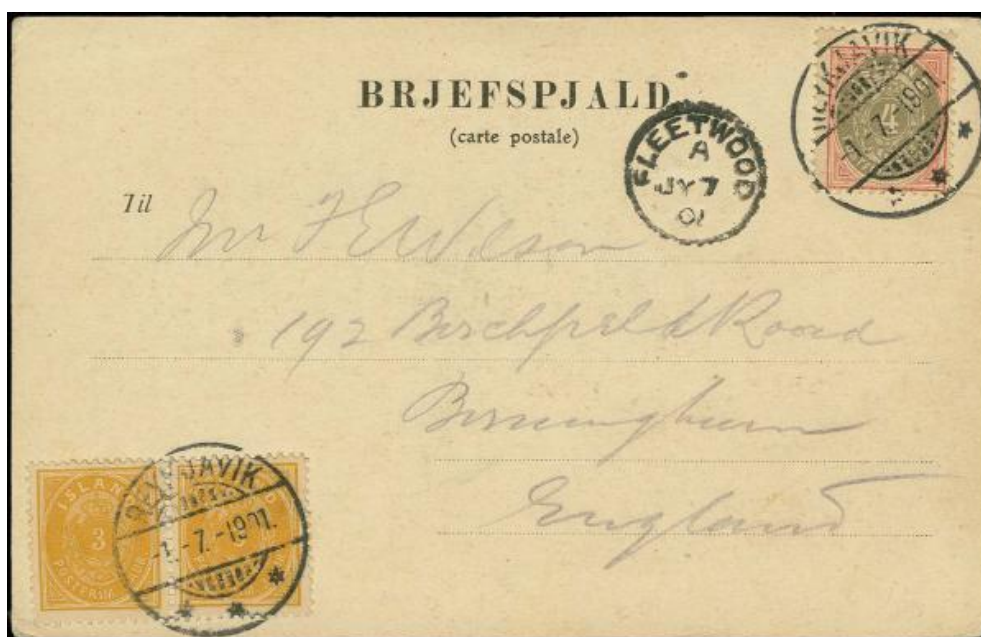 BRJEFSPJALD
(carte postale)
FLEETWOOD
A
JY 7
01
REYKJAVIK
7.-1901
4
Til
Mr J E Wilson
192 Birchfield Road
Birmingham
England
ISLAND
3
REYKJAVIK
-1.-7.-1901.